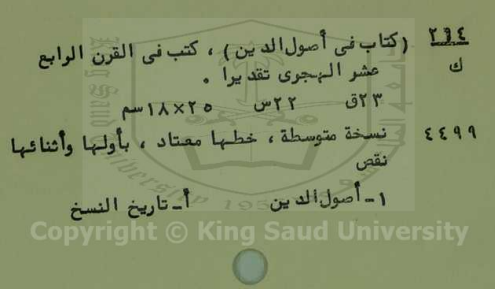 ٢٣٤ (كتاب فى أصول الدين) ، كتب فى القرن الرابع
ك عشر الهجرى تقديرا .
٢٣ق ٢٢س ٢٥×١٨سم
٤٤٩٩ نسخة متوسطة ، خطها معتاد ، بأولها وأثنائها
نقص
١- أصول الدين أ- تاريخ النسخ
Copyright © King Saud University